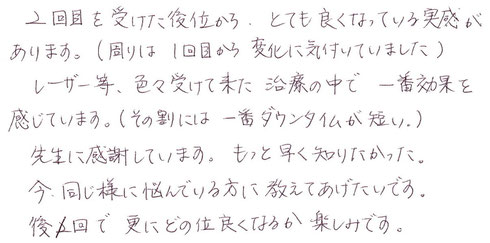 2回目を受けた後位から、とても良くなっている実感が
あります。(周りは1回目から変化に気付いていました)
レーザー等、色々受けて来た治療の中で一番効果を
感じています。(その割には一番ダウンタイムが短い.)
先生に感謝しています。もっと早く知りたかった。
今、同じ様に悩んでいる方に教えてあげたいです。
後1回で更にどの位良くなるか楽しみです。